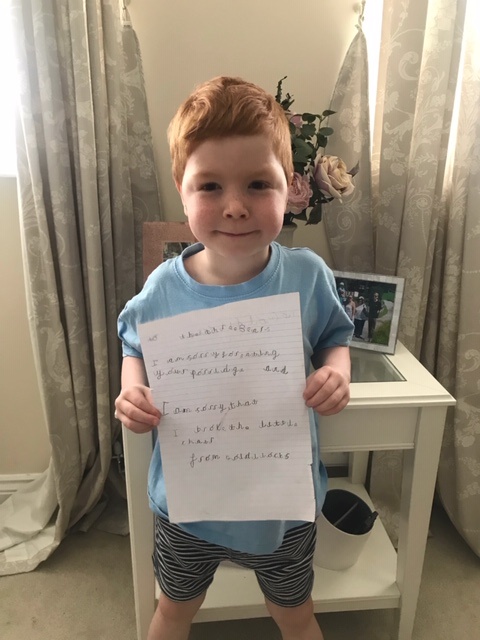 I am sorry for eating
your porridge. and
I am sorry that
I broke the little
chair
from goldilocks